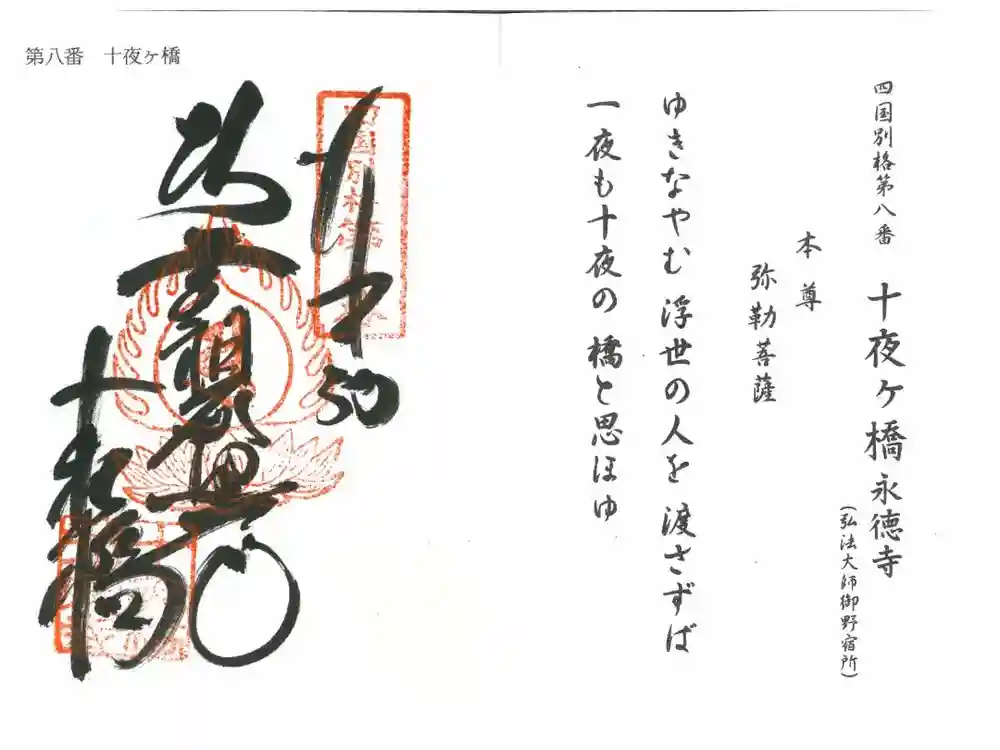 第八番 十夜ヶ橋
四国別格第八番 十夜ヶ橋 永徳寺
(弘法大師御野宿所)
本尊
弥勒菩薩
ゆきなやむ 浮世の人を 渡さずば
一夜も十夜の 橋と思ほゆ
十夜橋